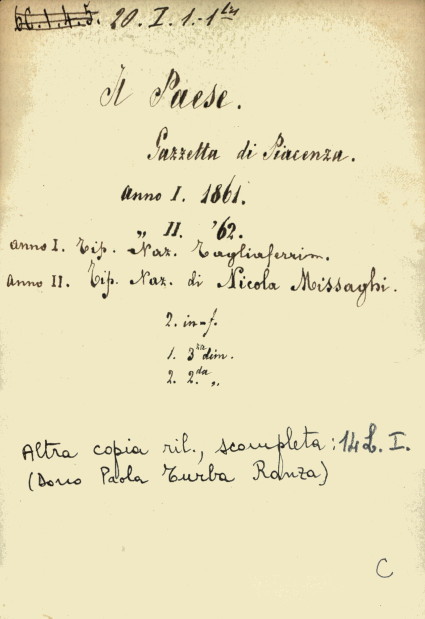 6C.I.4.5. 20. I. 1.-1 bis
Il Paese.
Gazzetta di Piacenza.
Anno I. 1861.
„ II. '62.
Anno I. Tip. Naz. Tagliaferri m.
Anno II. Tip. Naz. di Nicola Missaghi.
2. in-f.
1. 3za dim.
2. 2.da „
Altra copia ril., scompleta: 14 L. I.
(Dono Paola Turba Ranza)
C